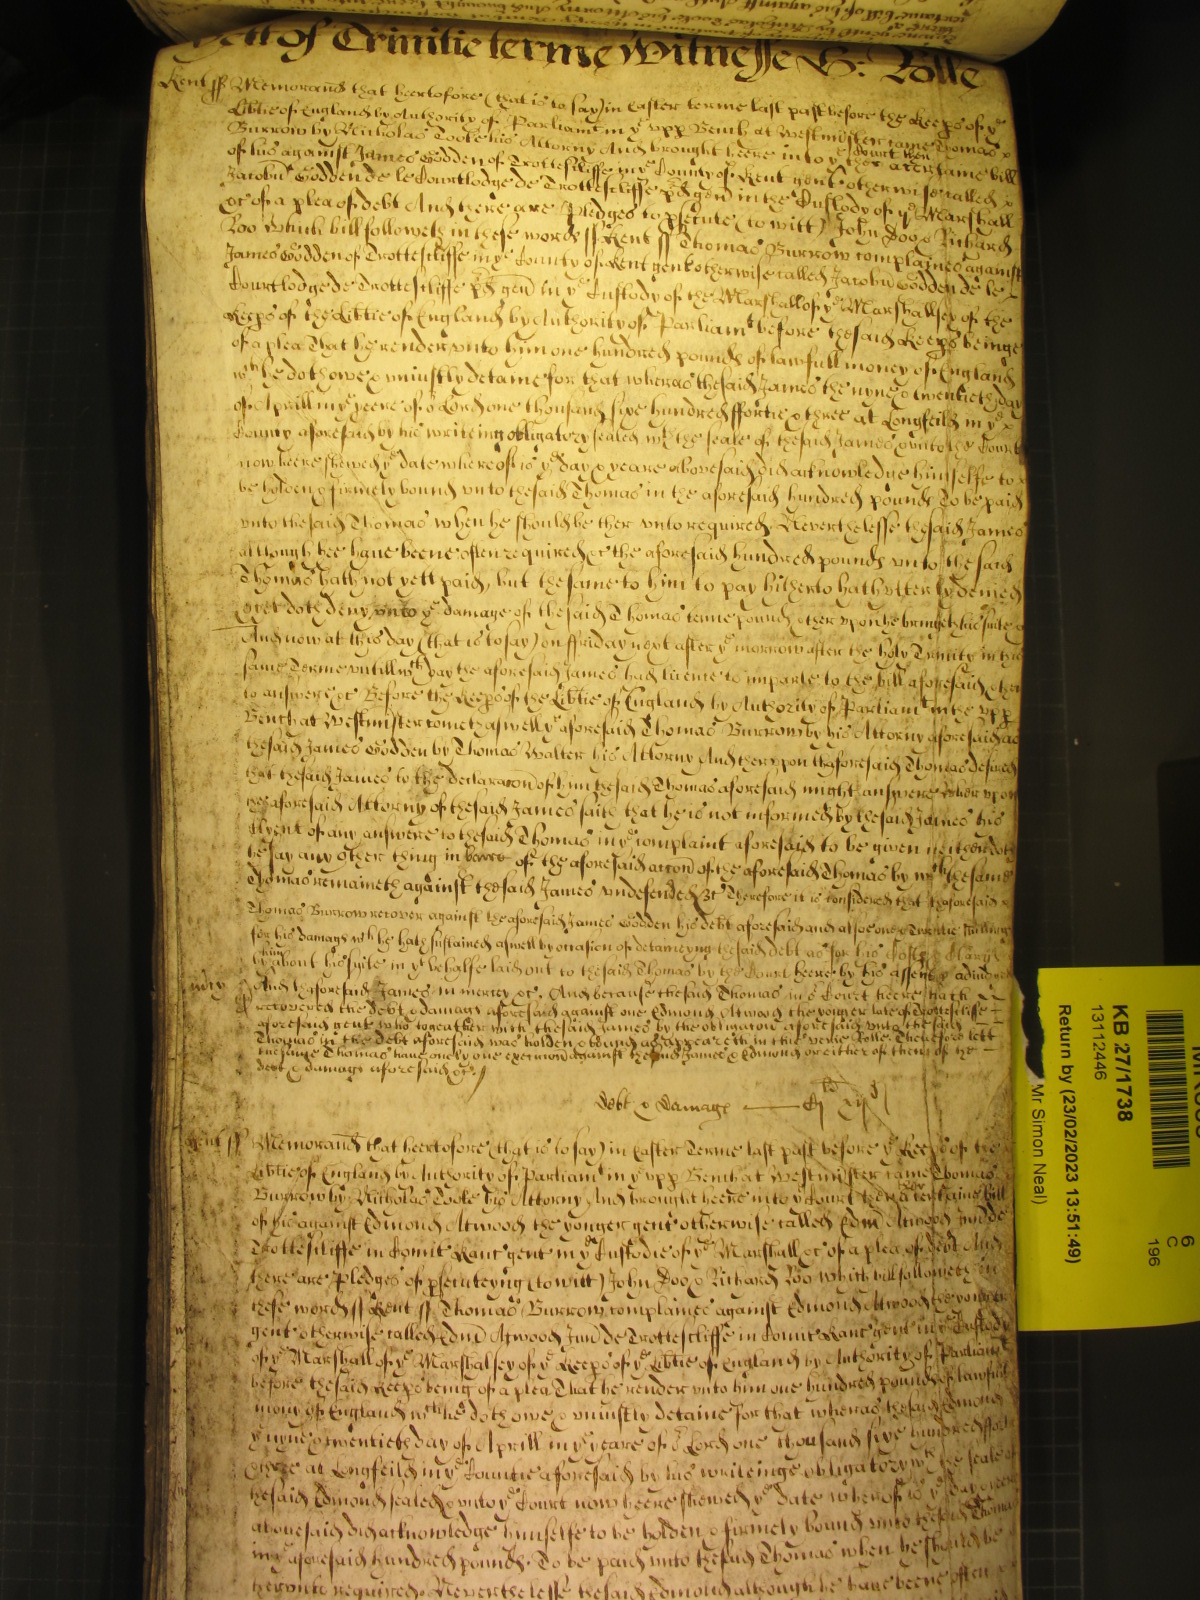 of Trinitie terme Witnesse H: Rolle
Kent ss Memorand that heertofore (that is to say) in Easter terme last past before the Keeps of ye
Libtie of England by Authority of Parliamt in ye vpp Bench at Westminster came Thomas
Burrow by Nicholas Toole his Attorny And brought heere into ye Court then a certaine bill
of his against James Godden of Trottescliffe in ye County of Kent gent otherwise called
Jacobu Godden de le Courtlodge de Trottescliffe pd gen in the Custody of ye Marshall
&c of a plea of debt And there are Pledges to psecute (to witt) John Doo & Richard
Roo which bill followeth in these words ss Kent ss Thomas Burrow complaines against
James Godden of Trottescliffe in ye County of Kent gent otherwise called Jacobu Godden de le
Courtlodge de Trottescliffe pd gen in ye Custody of the Marshall of ye Marshallsey of the
Keeps of the Libtie of England by Authority of Parliamt before the said Keeps beinge
of a plea That he render unto him one hundred pounds of lawfull money of England
wch he doth owe & uniustly detaine for that wheras the said James the nyne & twentieth day
of Aprill in ye yeere of or Lord one thousand sixe hundred ffortie & three at Longfeild in ye
County aforesaid by his writeing obligatory sealed wth the seale of the said James & unto the Court
now heere shewed ye date whereof is ye day & yeare abovesaid did acknowledge himselfe to
be holden & firmely bound unto the said Thomas in the aforesaid hundred pounds To be paid
unto the said Thomas when he should be ther unto required Neverthelesse the said James
although hee have beene often required &c the aforesaid hundred pounds unto the said
Thomas hath not yett paid, but the same to him to pay hitherto hath utterly denied
& yet doth deny unto ye damage of the said Thomas tenne pounds & ther upon he bringeth his suite
And now at this day (that is to say) on ffriday next after ye morrow after the holy Trinity in this
same Terme untill wch day the aforesaid James had licence to imparle to the bill aforesaid & then
to answere &c Before the Keeps of the Libtie of England by Authority of Parliamt in the vpp
Bench at Westminster cometh aswell ye aforesaid Thomas Burrow by his Attorny aforesaid as
the said James Godden by Thomas Walter his Attorny And ther upon thaforesaid Thomas desired
that the said James to the declaracon of him the said Thomas aforesaid might answere & ther upon
the aforesaid Attorny of the said James saith that he is not informed by the said James his
Clyent of any answere to the said Thomas in ye complaint aforesaid to be given neither doth
he say any other thing in barre of the aforesaid accon of the aforesaid Thomas by wch the same
Thomas remaineth against the said James undefended &c Therefore it is considered that thaforesaid
Thomas Burrow recover against the aforesaid James Godden his debt aforesaid and alsoe one & Twentie shillings
for his damags wch he hath susteined aswell by occasion of detaineyng the said debt as for his Costs & Charges
by him about his suite in ye behalfe laid out to the said Thomas by the Court heere by his assent adiudged
And thaforesaid James in mercy &c. And because the said Thomas in ye Court heere hath
recovered the debt & damags aforesaid against one Edmond Atwood the yonger late of Trottescliffe
aforesaid gent who togeather with the said James by the obligatory aforesaid unto the said
Thomas in the debt aforesaid was holden & bound as appeareth in this verie Rolle. Therefore lett
the same Thomas have onely one execucon against the said James & Edmond or either of them of the
debt & damags aforesaid &c.
debt & damags Cj li xij d
Kent ss Memorand that heertofore (that is to say) in Easter Terme last past before ye Keeps of the
Libtie of England by Authority of Parliamt in ye vpp Bench at Westminster came Thomas
Burrow by Nicholas Toole his Attorny And brought heere into ye Court then a certaine bill
of his against Edmond Atwood the yonger gent otherwise called Edm Atwood Jun de
Trottescliffe in Comit Kanc gent in ye Custodie of ye Marshall &c of a plea of debt And
there are Pledges of psecuteyng (to witt) John Doo & Richard Roo which bill followeth in
these words ss Kent ss Thomas Burrow complaines against Edmond Atwood the yonger
gent otherwise called Edm Atwood Jun de Trottescliffe in Comit Kanc gent in ye Custody
of ye Marshall of ye Marshalsey of ye Keeps of ye Libtie of England by Authority of Parliamt
before the said Keeps being of a plea That he render unto him one hundred pounds of lawfull
mony of England wch he doth owe & uniustly detaine for that wheras the said Edmond
ye nyne & twentieth day of Aprill in ye yeare of or Lord one thousand sixe hundred ffortie
& three at Longfeild in ye Countie aforesaid by his writeinge obligatory wth the seale of
the said Edmond sealed & unto ye Court now heere shewed ye date wherof is ye day & yeere
abovesaid did acknowledge himselfe to be holden & firmely bound unto the said Thomas
in ye aforesaid hundred pounds. To be paid unto the said Thomas when he should be
therunto required. Neverthelesse the said Edmond although he have beene often
KB 27/1738
13112446
Return by (23/02/2023 13:51:49)
Mr Simon Neal)
6
C
196